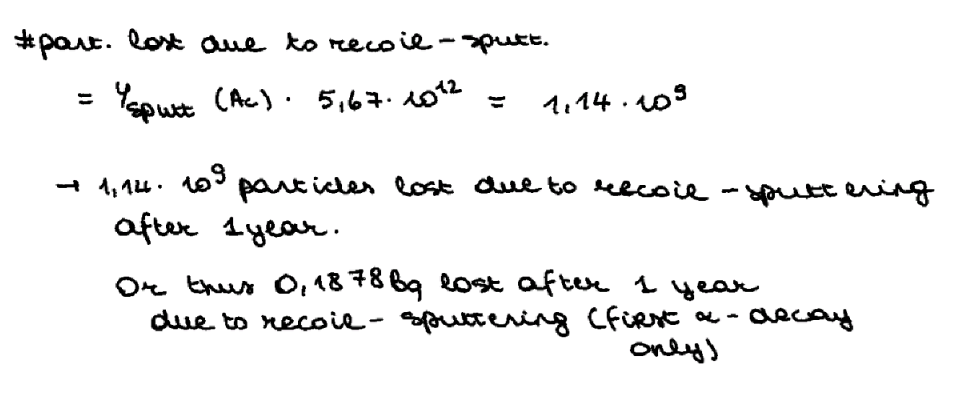 #part. lost due to recoil-sputt.
= Y_sputt (Ac) · 5,67 · 10^12 = 1,14 · 10^9
→ 1,14 · 10^9 particles lost due to recoil-sputtering
after 1 year.
Or thus 0,1878 Bq lost after 1 year
due to recoil-sputtering (first α-decay
only)